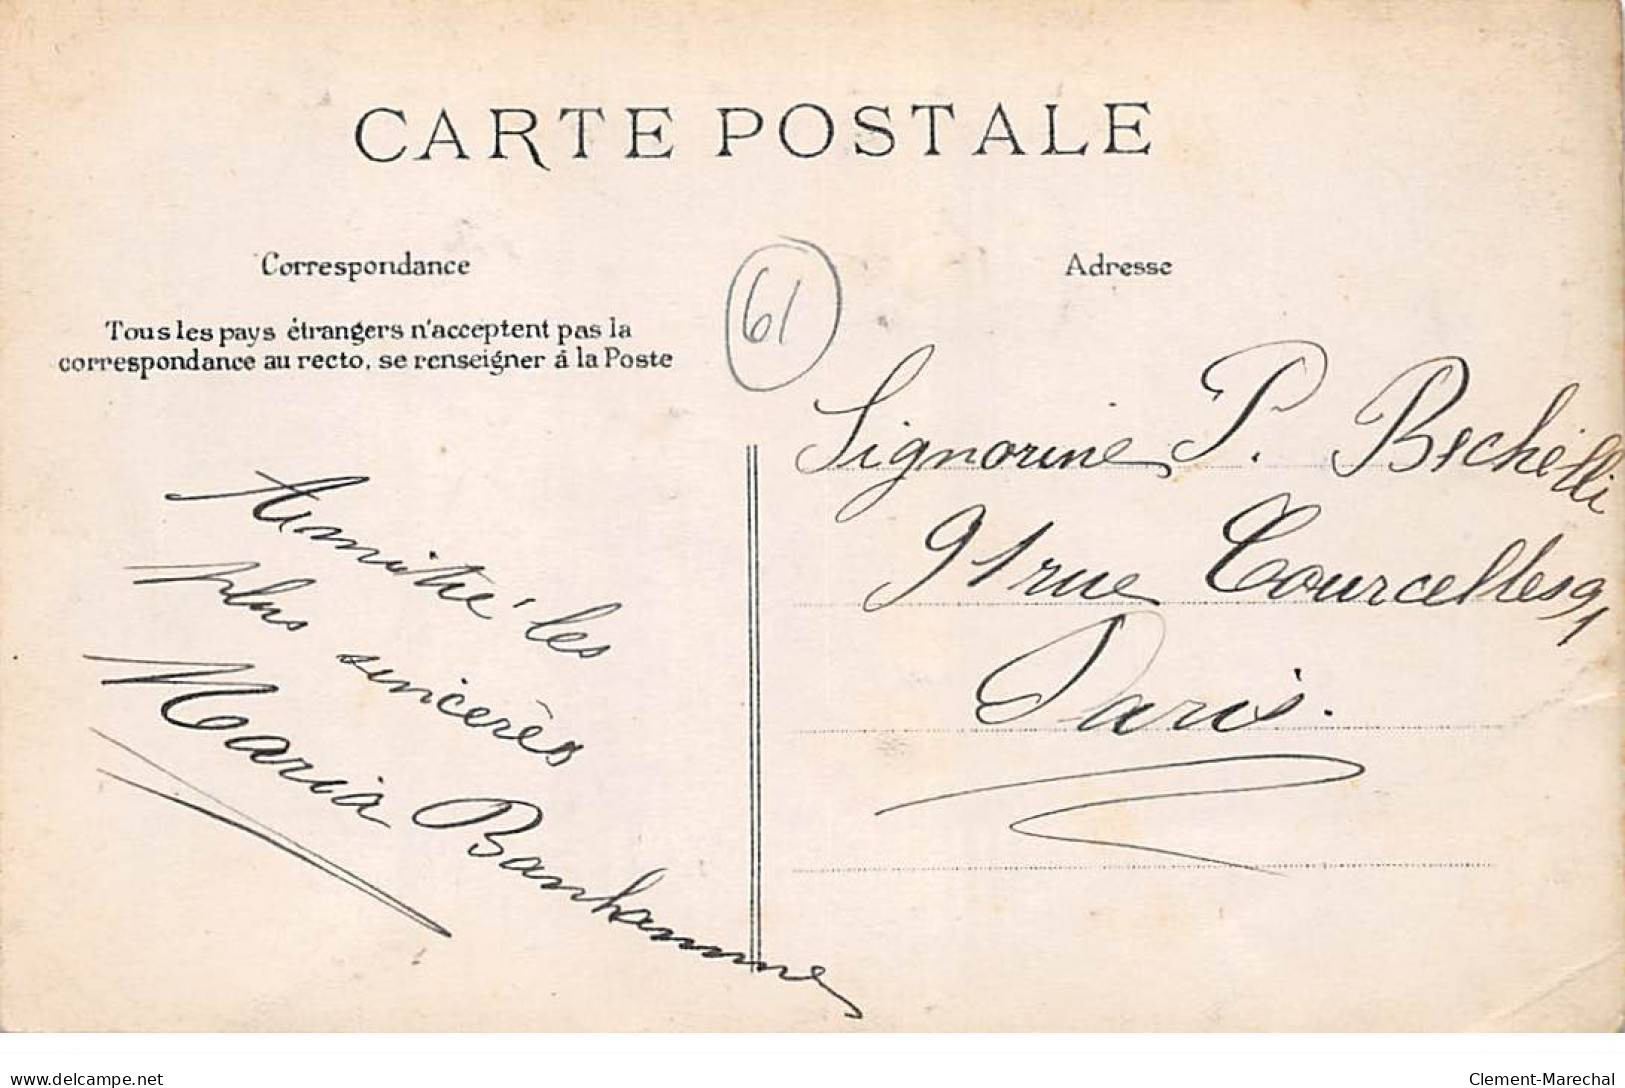 CARTE POSTALE
Correspondance
Tous les pays étrangers n'acceptent pas la
correspondance au recto, se renseigner à la Poste
Amitié les
plus sincerès
Maria
61
Adresse
Signorine P. Bechelli
91 rue Courcelles 91
Paris.
www.delcampe.net
Clement-Marechal